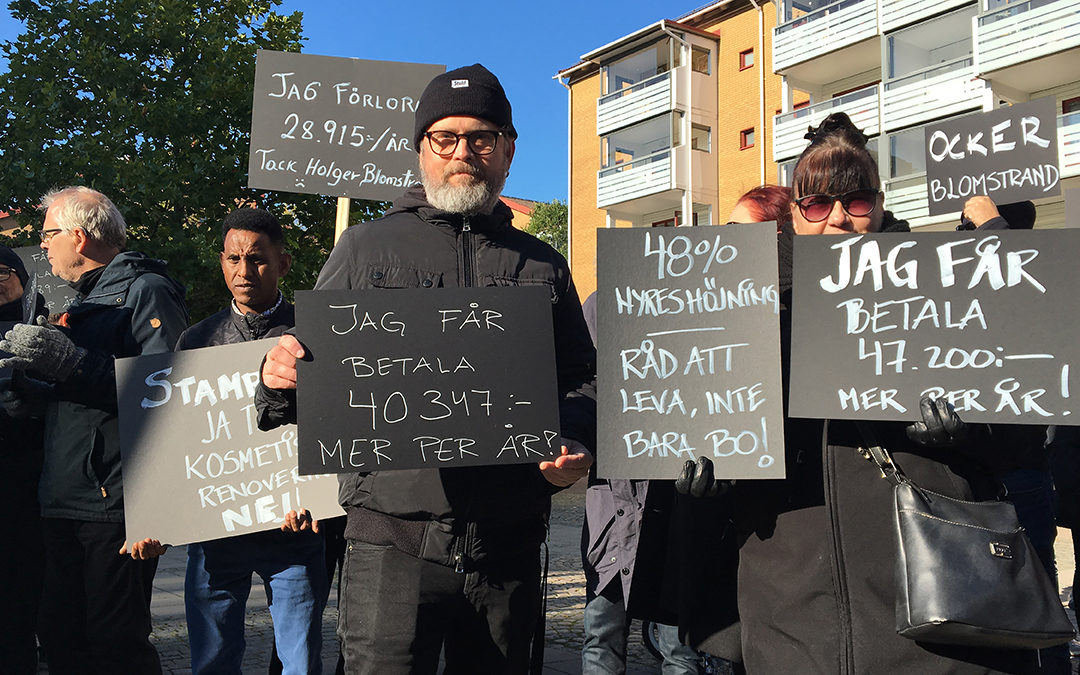 JAG FÖRLORA
28.915:-/ÅR
TACK HOLGER BLOMSTRA
OCKER
BLOMSTRAND
STAMP
JA T
KOSMETIS
RENOVERIN
NEJ!
JAG FÅR
BETALA
40347:-
MER PER ÅR?
48%
HYRESHÖJNING
RÅD ATT
LEVA, INTE
BARA BO!
JAG FÅR
BETALA
47.200:-
MER PER ÅR!